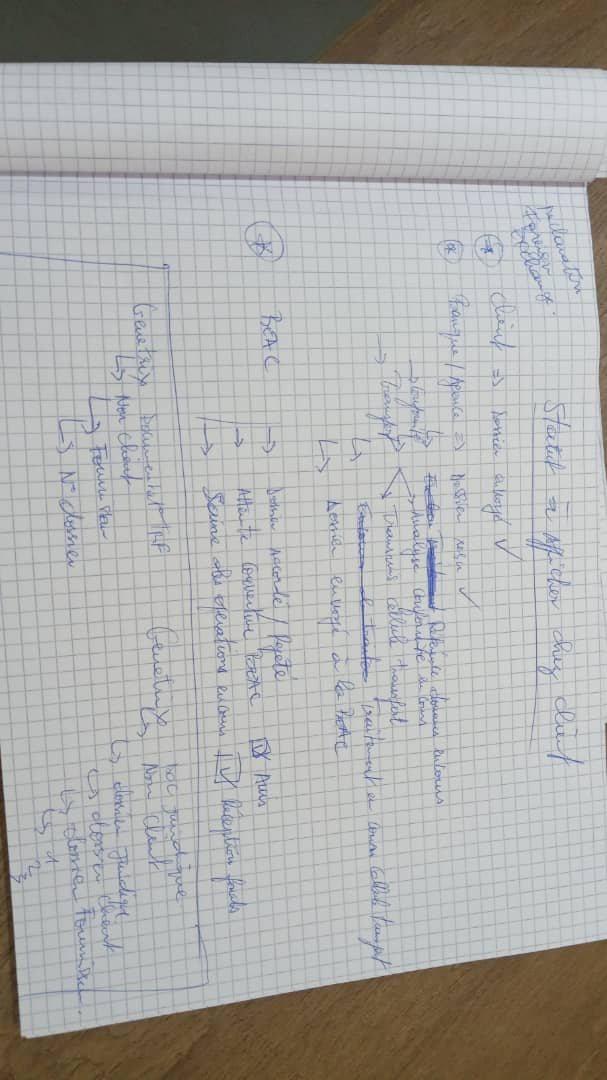 Declaration
Foreign
Exchange.
Statut à Afficher chez client
Client => Dossier envoyé ✓
Banque / Agence => Dossier reçu ✓
↳ Référence domaine en cours
→ Conformité → Analyse conformité en cours
→ Transfert → Transmis cellule transfert
↳ Traitement en cours cellule transfert
↳ Dossier envoyé à la BEAC
BEAC → Dossier Accordé / Rejeté
→ Attente couverture BEAC ☑ Avis
→ Saisie des opérations en cours ☑ Réception fonds
Genetrix Documentat° TRF
↳ Nom Client
↳ Fournisseur
↳ N° dossier
Genetrix Doc juridique
↳ Nom Client
↳ dossier juridique
↳ dossier client
↳ dossier Fournisseur.
↳ 1
2
3